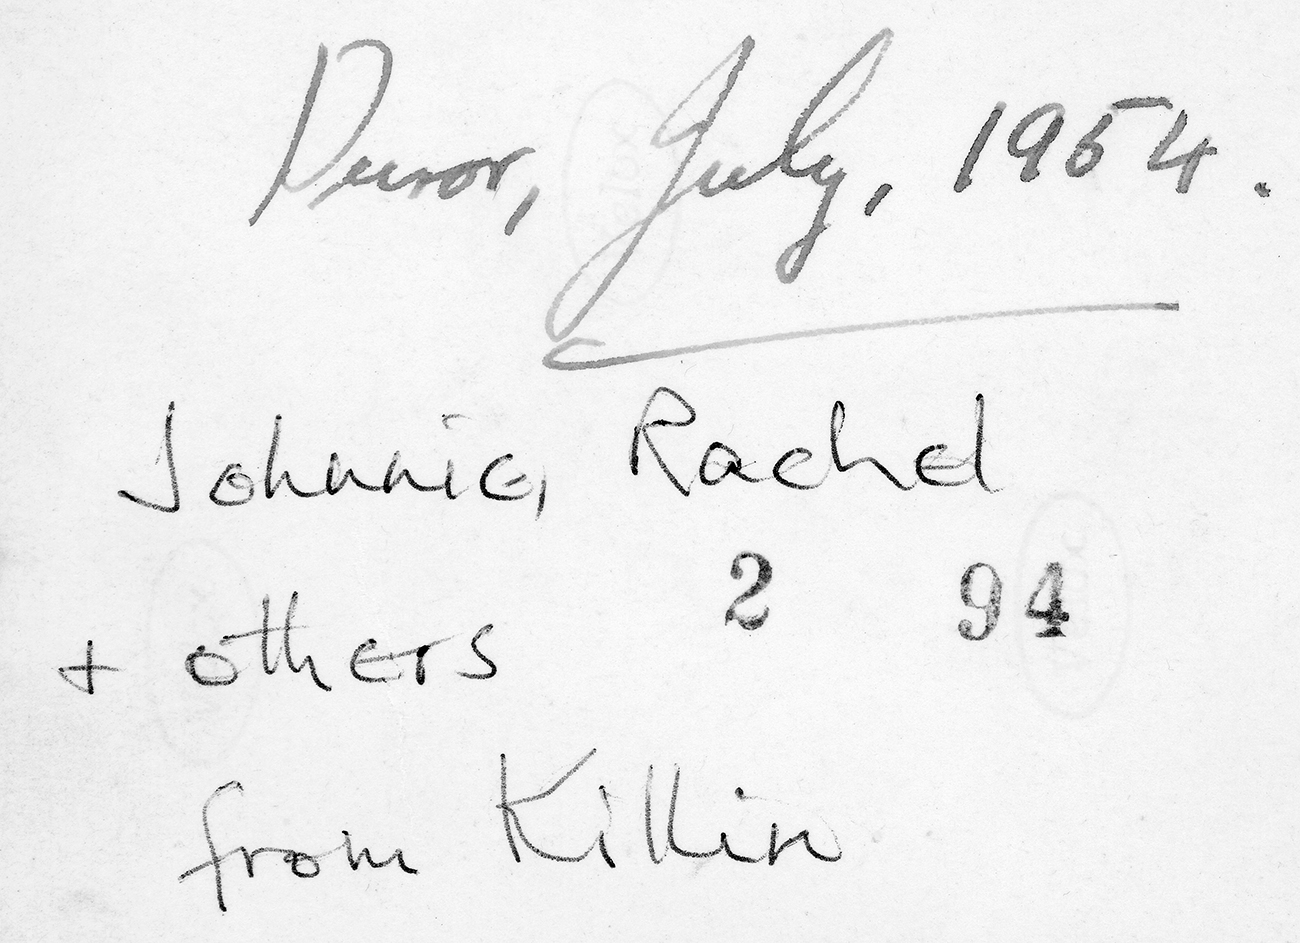 Duror, July, 1954.
Johnnie, Rachel
+ others
2 94
from Killin